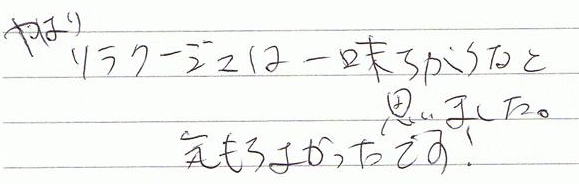 やはり
リラクージュは一味ちがうなと
思いました。
気もちよかったです!